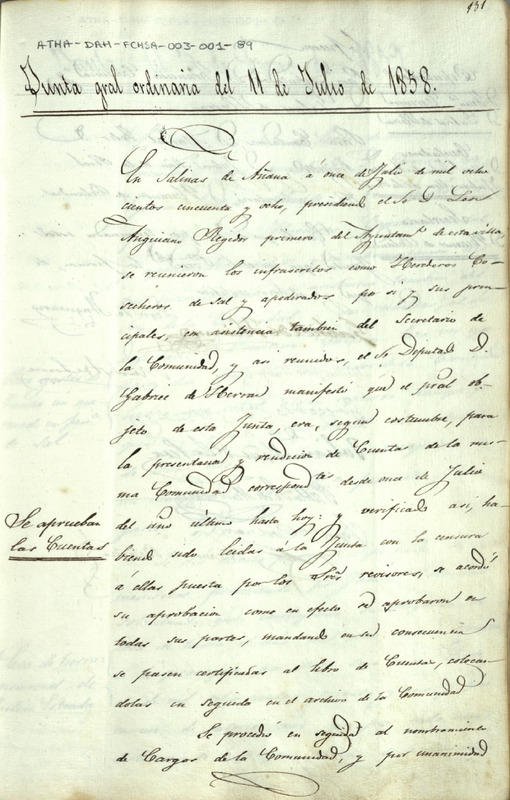 131
ATHA-DAH-FCHSA-003-001-89
Junta gral ordinaria del 11 de Julio de 1858.
En Salinas de Añana á once de Julio de mil ocho
cientos cincuenta y ocho, presidiend el Sr D. José
Anguiano Regidor primero del Ayuntamto de esta villa,
se reunieron los infrascritos como Herederos Co-
secheros de sal y apoderados por si y sus prin-
cipales, con asistencia tambien del Secretario de
la Comunidad, y asi reunidos, el Sr Diputado D.
Gabriel de Herran manifestó que el pral ob-
jeto de esta Junta, era, segun costumbre, para
la presentacion y rendicion de Cuentas de la mis-
ma Comunidad correspondtes desde once de Julio
del año último hasta hoy: y verificado asi, ha-
Se aprueban
las Cuentas
biendo sido leidas á la Junta con la censura
á ellas puesta por los Srēs revisores, se acordó
su aprobacion como en efecto se aprobaron en
todas sus partes, mandando en su consecuencia
se pasen certificadas al libro de Cuentas, colocan-
dolas en seguida en el archivo de la Comunidad
Se procedió en seguida al nombramiento
de Cargos de la Comunidad, y por unanimidad